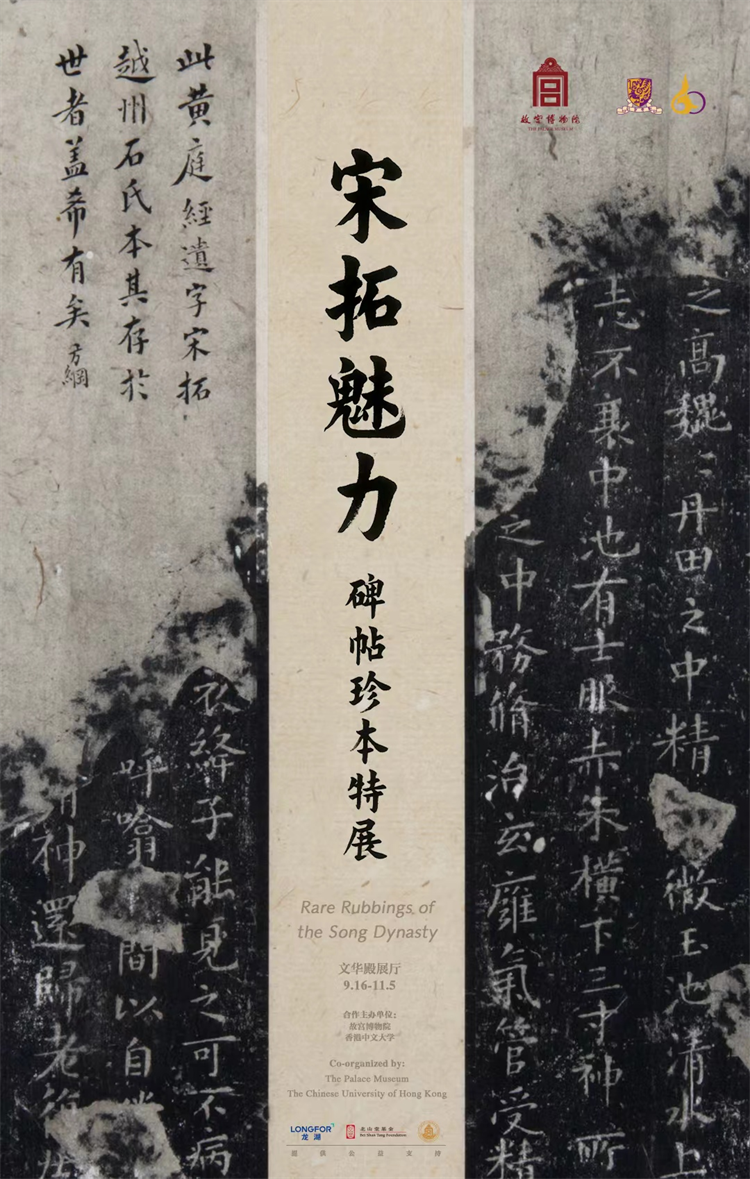 此黄庭經遺字宋拓
越州石氏本其存於
世者盖希有矣
方綱
故宫博物院
THE PALACE MUSEUM
宋拓魅力
碑帖珍本特展
Rare Rubbings of
the Song Dynasty
文华殿展厅
9.16-11.5
合作主办单位：
故宫博物院
香港中文大学
Co-organized by:
The Palace Museum
The Chinese University of Hong Kong
LONGFOR
龙湖
北山堂基金
Bei Shan Tang Foundation
提供公益支持
之高魏〻丹田之中精
微玉池清水上
志不衰中池有士服赤朱橫下三寸神所
之中務脩治玄廱氣管受精
衣絳子能見之可不病
呼噏
間以自
神還歸老復